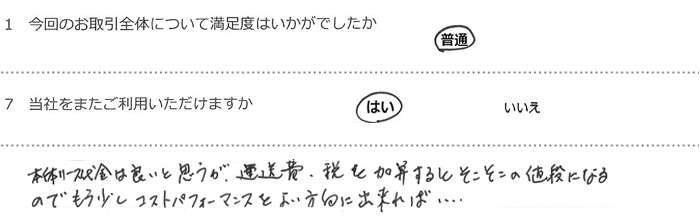 1 今回のお取引全体について満足度はいかがでしたか
普通
7 当社をまたご利用いただけますか
はい いいえ
本体リース代金は良いと思うが、運送費、税を加算するとそこそこの値段になる
のでもう少しコストパフォーマンスをよい方向に出来れば‥‥